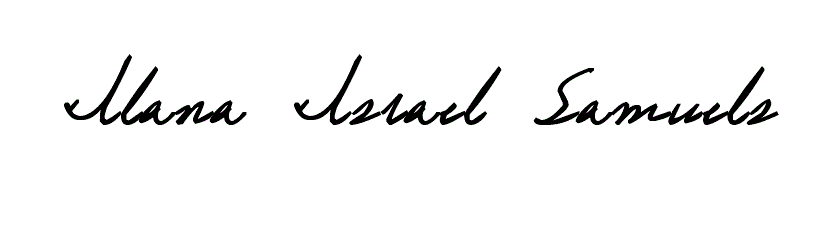 Ilana Israel Samuels